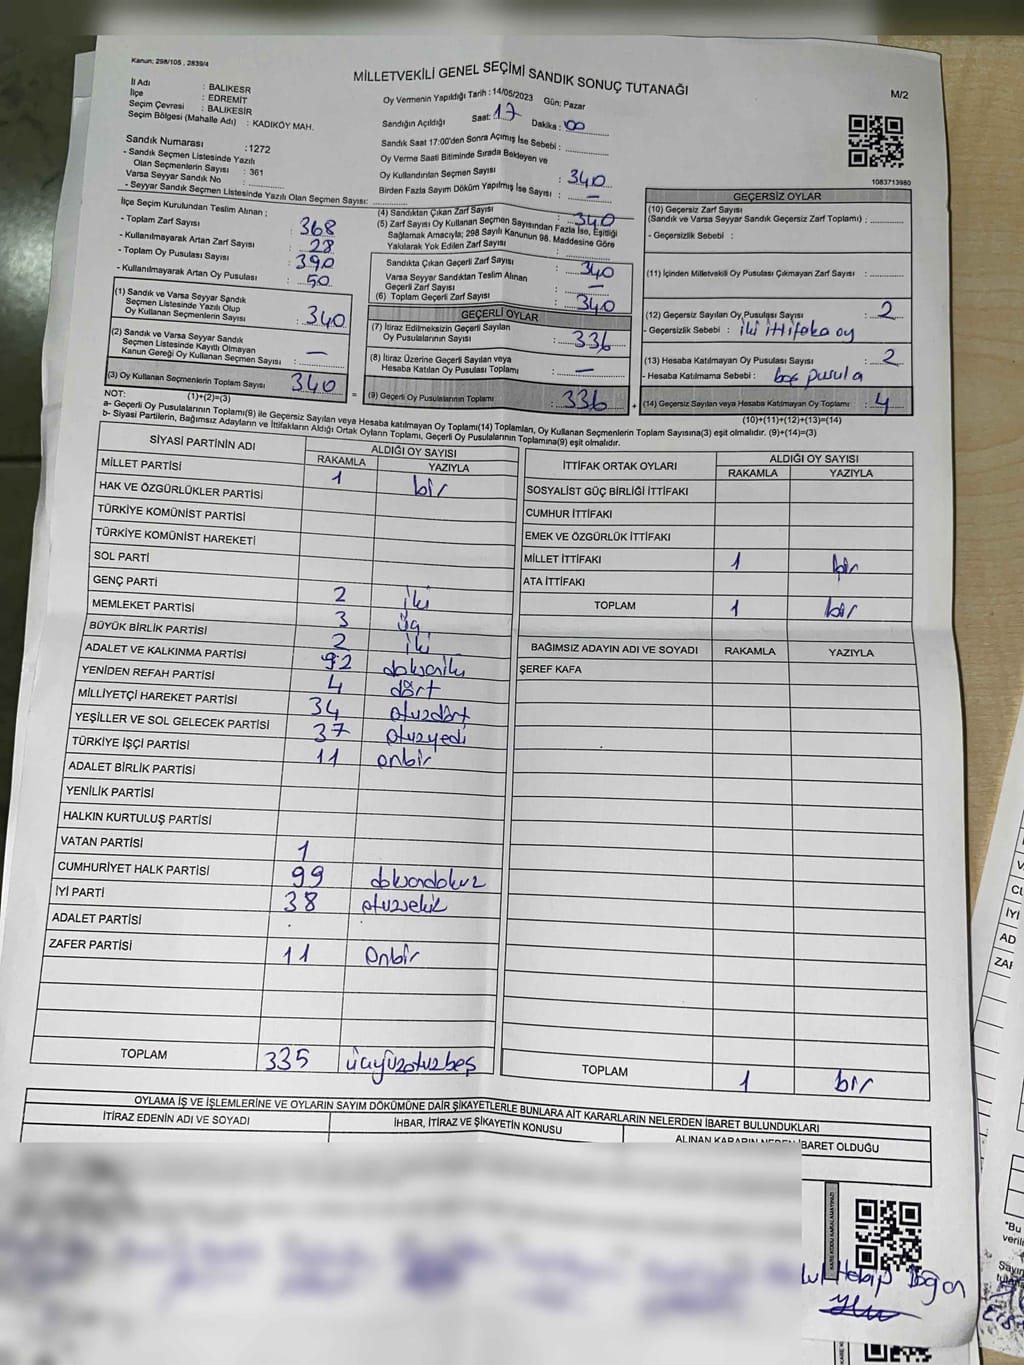 Kanun: 298/105 , 2839/4
MİLLETVEKİLİ GENEL SEÇİMİ SANDIK SONUÇ TUTANAĞI
M/2
İl Adı : BALIKESR
İlçe : EDREMİT
Seçim Çevresi : BALIKESİR
Seçim Bölgesi (Mahalle Adı) : KADIKÖY MAH.
Sandık Numarası :1272
- Sandık Seçmen Listesinde Yazılı
Olan Seçmenlerin Sayısı : 361
Varsa Seyyar Sandık No :
- Seyyar Sandık Seçmen Listesinde Yazılı Olan Seçmen Sayısı:
Oy Vermenin Yapıldığı Tarih : 14/05/2023 Gün: Pazar
Sandığın Açıldığı Saat: 17 Dakika : 00
Sandık Saat 17:00'den Sonra Açmış İse Sebebi :
Oy Verme Saati Bitiminde Sırada Bekleyen ve
Oy Kullandırılan Seçmen Sayısı : 340
Birden Fazla Sayım Döküm Yapılmış İse Sayısı : —
1083713980
İlçe Seçim Kurulundan Teslim Alınan ;
- Toplam Zarf Sayısı : 368
- Kullanılmayarak Artan Zarf Sayısı : 28
- Toplam Oy Pusulası Sayısı : 390
- Kullanılmayarak Artan Oy Pusulası : 50
(1) Sandık ve Varsa Seyyar Sandık
Seçmen Listesinde Yazılı Olup
Oy Kullanan Seçmenlerin Sayısı : 340
(2) Sandık ve Varsa Seyyar Sandık
Seçmen Listesinde Kayıtlı Olmayan
Kanun Gereği Oy Kullanan Seçmen Sayısı : —
(3) Oy Kullanan Seçmenlerin Toplam Sayısı : 340
(1)+(2)=(3)
(4) Sandıktan Çıkan Zarf Sayısı : 340
(5) Zarf Sayısı Oy Kullanan Seçmen Sayısından Fazla İse, Eşitliği
Sağlamak Amacıyla; 298 Sayılı Kanunun 98. Maddesine Göre
Yakılarak Yok Edilen Zarf Sayısı :
Sandıkta Çıkan Geçerli Zarf Sayısı : 340
Varsa Seyyar Sandıktan Teslim Alınan
Geçerli Zarf Sayısı : —
(6) Toplam Geçerli Zarf Sayısı : 340
GEÇERLİ OYLAR
(7) İtiraz Edilmeksizin Geçerli Sayılan
Oy Pusulalarının Sayısı : 336
(8) İtiraz Üzerine Geçerli Sayılan veya
Hesaba Katılan Oy Pusulası Toplamı : —
= (9) Geçerli Oy Pusulalarının Toplamı : 336 +
GEÇERSİZ OYLAR
(10) Geçersiz Zarf Sayısı
(Sandık ve Varsa Seyyar Sandık Geçersiz Zarf Toplamı) :
- Geçersizlik Sebebi :
(11) İçinden Milletvekili Oy Pusulası Çıkmayan Zarf Sayısı :
(12) Geçersiz Sayılan Oy Pusulası Sayısı : 2
- Geçersizlik Sebebi : iki ittifaka oy
(13) Hesaba Katılmayan Oy Pusulası Sayısı : 2
- Hesaba Katılmama Sebebi : boş pusula
(14) Geçersiz Sayılan veya Hesaba Katılmayan Oy Toplamı : 4
(10)+(11)+(12)+(13)=(14)
NOT:
a- Geçerli Oy Pusulalarının Toplamı(9) ile Geçersiz Sayılan veya Hesaba Katılmayan Oy Toplamı(14) Toplamları, Oy Kullanan Seçmenlerin Toplam Sayısına(3) eşit olmalıdır. (9)+(14)=(3)
b- Siyasi Partilerin, Bağımsız Adayların ve İttifakların Aldığı Ortak Oyların Toplamı, Geçerli Oy Pusulalarının Toplamına(9) eşit olmalıdır.
SİYASİ PARTİNİN ADI ALDIĞI OY SAYISI
RAKAMLA YAZIYLA
MİLLET PARTİSİ 1 bir
HAK VE ÖZGÜRLÜKLER PARTİSİ
TÜRKİYE KOMÜNİST PARTİSİ
TÜRKİYE KOMÜNİST HAREKETİ
SOL PARTİ
GENÇ PARTİ 2 iki
MEMLEKET PARTİSİ 3 üç
BÜYÜK BİRLİK PARTİSİ 2 iki
ADALET VE KALKINMA PARTİSİ 92 doksaniki
YENİDEN REFAH PARTİSİ 4 dört
MİLLİYETÇİ HAREKET PARTİSİ 34 otuzdört
YEŞİLLER VE SOL GELECEK PARTİSİ 37 otuzyedi
TÜRKİYE İŞÇİ PARTİSİ 11 onbir
ADALET BİRLİK PARTİSİ
YENİLİK PARTİSİ
HALKIN KURTULUŞ PARTİSİ
VATAN PARTİSİ 1
CUMHURİYET HALK PARTİSİ 99 doksandokuz
İYİ PARTİ 38 otuzsekiz
ADALET PARTİSİ
ZAFER PARTİSİ 11 onbir
TOPLAM 335 üçyüzotuzbeş
İTTİFAK ORTAK OYLARI ALDIĞI OY SAYISI
RAKAMLA YAZIYLA
SOSYALİST GÜÇ BİRLİĞİ İTTİFAKI
CUMHUR İTTİFAKI
EMEK VE ÖZGÜRLÜK İTTİFAKI
MİLLET İTTİFAKI 1 bir
ATA İTTİFAKI
TOPLAM 1 bir
BAĞIMSIZ ADAYIN ADI VE SOYADI RAKAMLA YAZIYLA
ŞEREF KAFA
TOPLAM 1 bir
OYLAMA İŞ VE İŞLEMLERİNE VE OYLARIN SAYIM DÖKÜMÜNE DAİR ŞİKAYETLERLE BUNLARA AİT KARARLARIN NELERDEN İBARET BULUNDUKLARI
İTİRAZ EDENİN ADI VE SOYADI İHBAR, İTİRAZ VE ŞİKAYETİN KONUSU ALINAN KARARIN NEDEN İBARET OLDUĞU
KARE KODU KARALAMAYINIZ!